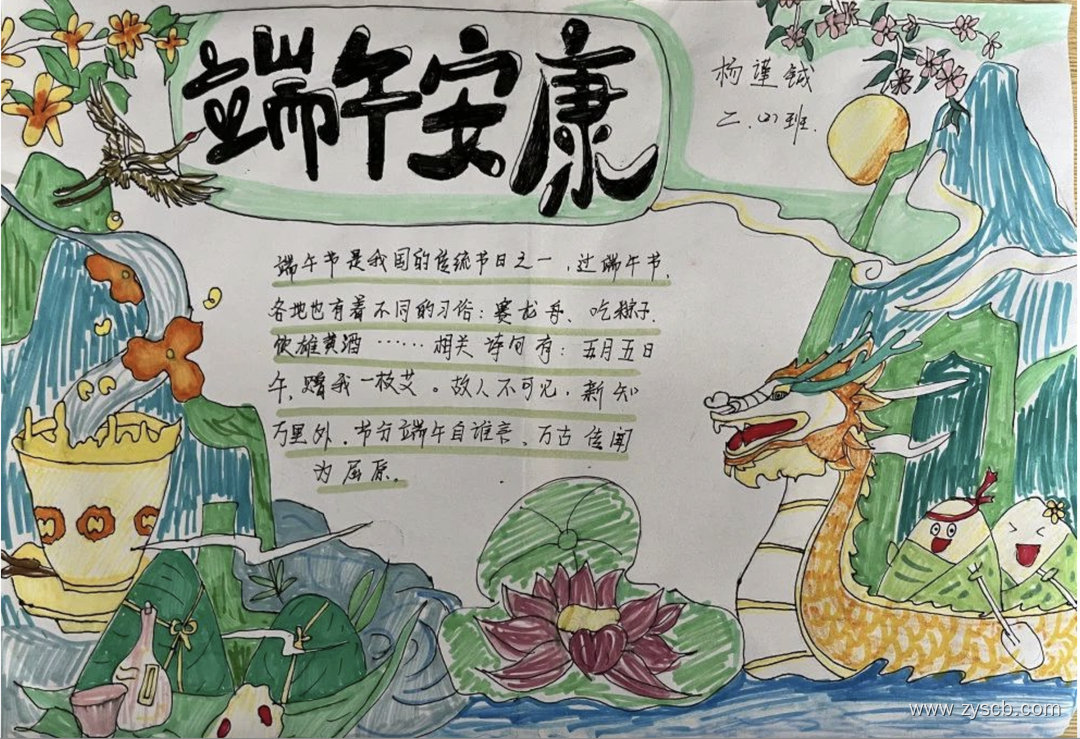 端午安康
杨谨铖
二.(2)班.
端午节是我国的传统节日之一,过端午节,
各地也有着不同的习俗:赛龙舟、吃粽子、
饮雄黄酒……相关诗句有:五月五日
午,赠我一枝艾。故人不可见,新知
万里外,节分端午自谁言,万古传闻
为屈原。
www.zyscb.com